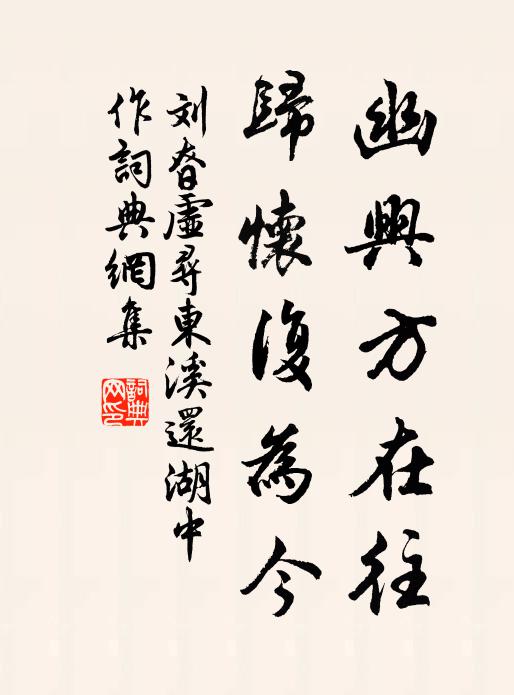 幽興方在往
歸懷復為今
刘昚虛尋東溪還湖中
作詞典網集
詞典
网印